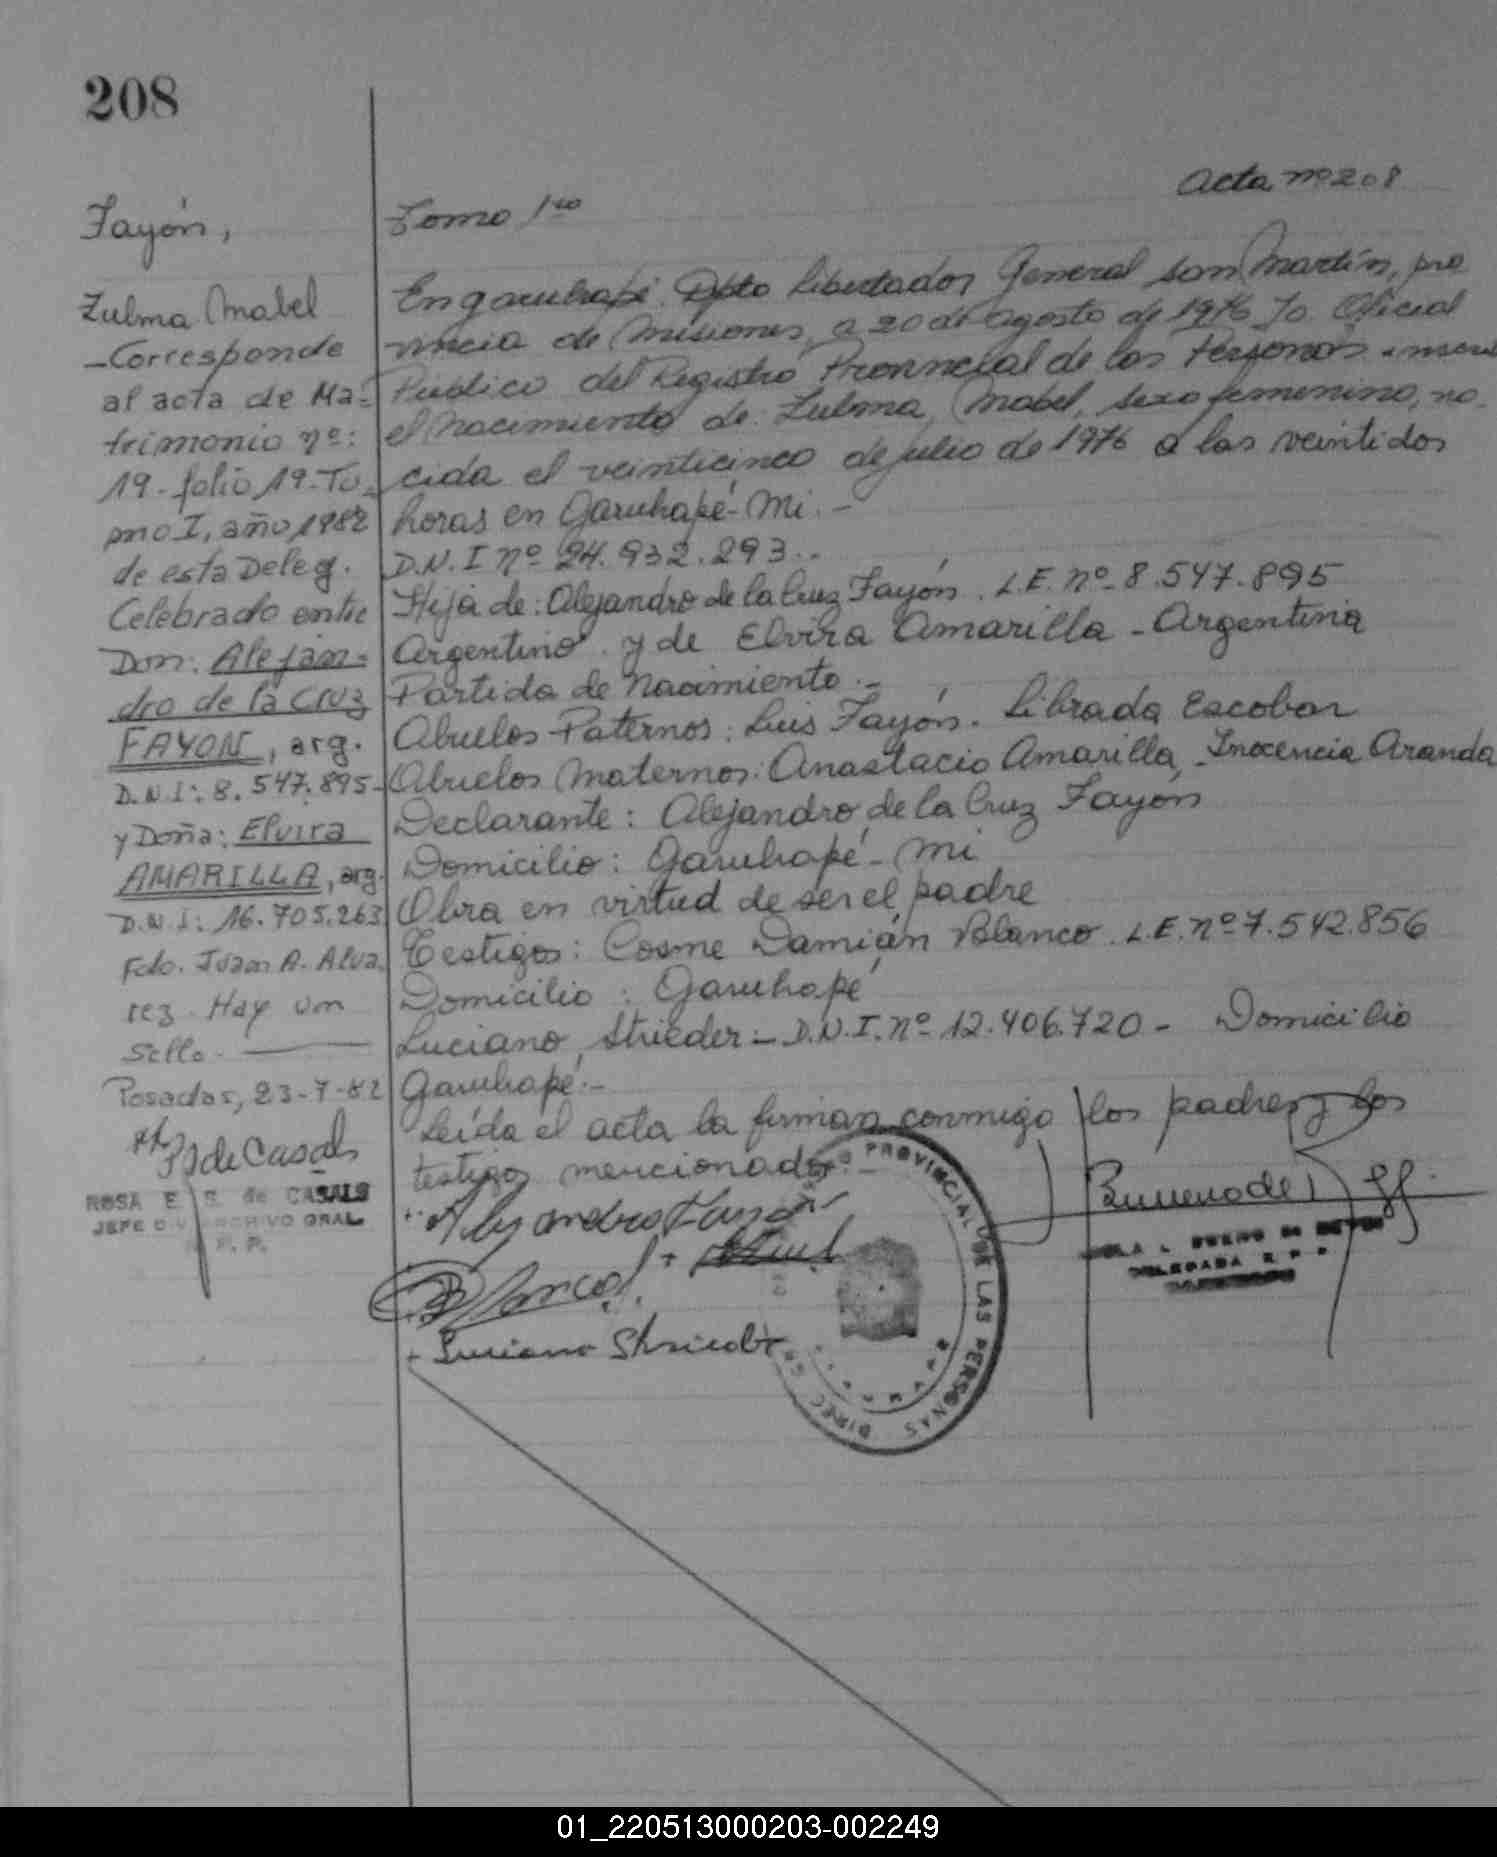 208
Acta nº 208
Fayón,
Zulma Mabel
-Corresponde
al acta de Ma-
trimonio nº:
19-folio 19-To-
mo I, año 1982
de esta Deleg.
Celebrado entre
Don: Alejan-
dro de la Cruz
FAYON, arg.
D.N.I: 8.547.895-
y Doña: Elvira
AMARILLA, arg.
D.N.I: 16.705.263
Fdo. Juan A. Alva-
rez. Hay um
Sello.
Posadas, 23-7-82
de Casals
ROSA E. S. de CASALS
JEFE DIV ARCHIVO GRAL.
R. P. P.
Tomo 1ro
En garuhapé Dpto Libertador General san Martín, pro
vincia de Misiones, a 20 de agosto de 1976 Yo. Oficial
Público del Registro Provincial de las Personas inscri
el Nacimiento de: Zulma, Mabel, sexo femenino, na-
cida el veinticinco de julio de 1976 a las veintidos
horas en Garuhapé-Mi.-
D.N.I nº 24.932.293..
Hija de: Alejandro de la Cruz Fayón. L.E. nº 8.547.895
Argentino. y de Elvira Amarilla - Argentina
Partida de Nacimiento.-
Abuelos Paternos: Luis Fayón. Librada Escobar
Abuelos Maternos: Anastacio Amarilla, Inocencia Aranda
Declarante: Alejandro de la Cruz Fayón
Domicilio: Garuhapé-Mi
Obra en virtud de ser el padre
Testigos: Cosme Damián Blanco. L.E. nº 7.542.856
Domicilio: Garuhapé
Luciano, Strieder - D.N.I. nº 12.406.720 - Domicilio
Garuhapé.-
Leída el acta la firman conmigo los padres y los
testigos mencionados
Alejandro Fayon
Blanco
Luciano Strieder
PROVINCIAL DE LAS PERSONAS DIREC
DELEGADA R. P. P.
01_220513000203-002249